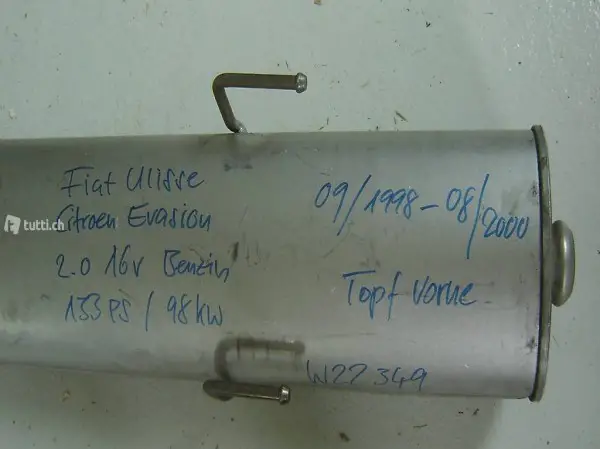 Fiat Ulisse
Citroen Evasion
2.0 16v Benzin
133 PS / 98 kW
09/1998-08/2000
Topf vorne
W22349
tutti.ch